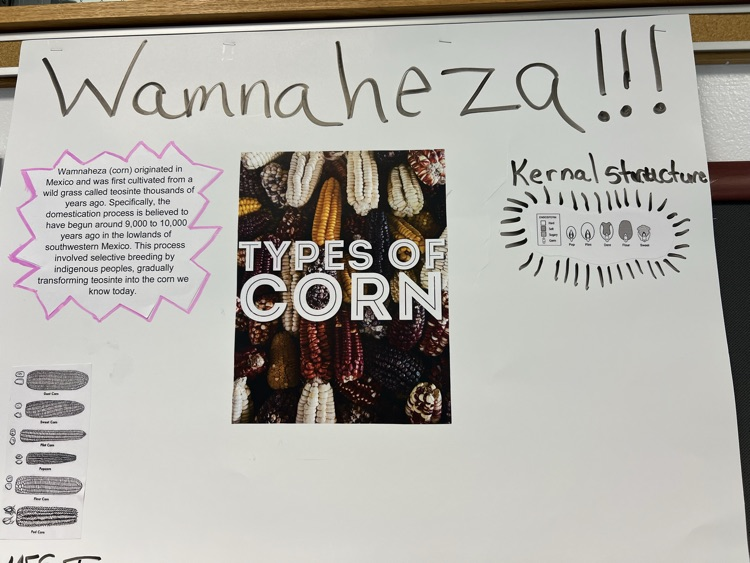 Wamnaheza!!!
Wamnaheza (corn) originated in
Mexico and was first cultivated from a
wild grass called teosinte thousands of
years ago. Specifically, the
domestication process is believed to
have begun around 9,000 to 10,000
years ago in the lowlands of
southwestern Mexico. This process
involved selective breeding by
indigenous peoples, gradually
transforming teosinte into the corn we
know today.
TYPES OF
CORN
Kernal Structure
Dent Corn
Sweet Corn
Flint Corn
Popcorn
Flour Corn
Pod Corn